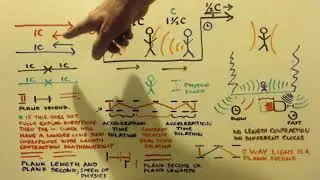 1C
C
1½C
1C
1C
1C
1 PHOTON
PLANK SECOND.
IF THIS DOES NOT
FULLY EXPLAIN EVERYTHING
THEN THE - CLOCK WILL
HAVE A LONGER LINE THAT
CORRESPONDS WITH LENGTH
CONTRACTION MATHEMATICALLY
ACCELERATION
TIME
DILATION
ACCELERATION
TIME
DILATION
SLOW
FAST
NO LENGTH CONTRACTION
NO DIFFERENT CLOCKS
PLANK LENGTH AND
PLANK SECOND, SPEED OF
PHYSICS
PLANK SECOND OR
PLANK LENGTH
2 WAY LIGHT IS A
PLANK SECOND